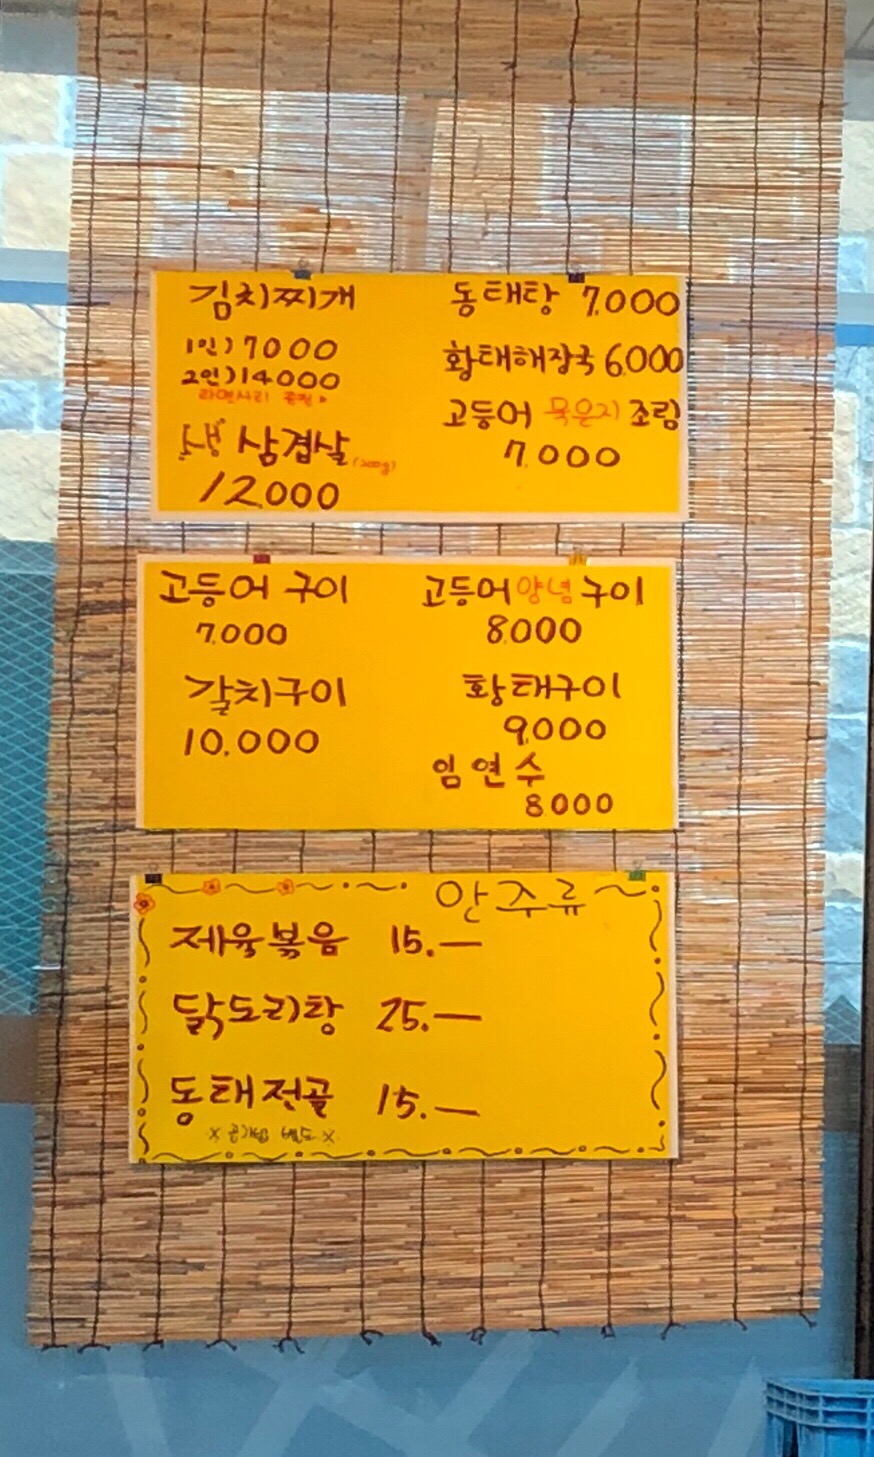 김치찌개
1인)7000
2인)14000
라면사리 공짜
생 삼겹살 (200g)
12.000
동태탕 7,000
황태해장국 6,000
고등어 묵은지 조림
7,000
고등어 구이
7,000
갈치구이
10,000
고등어양념구이
8,000
황태구이
9,000
임연수
8000
안주류
제육볶음 15.—
닭도리탕 25.—
동태전골 15.—
※ 공기밥 별도 ※